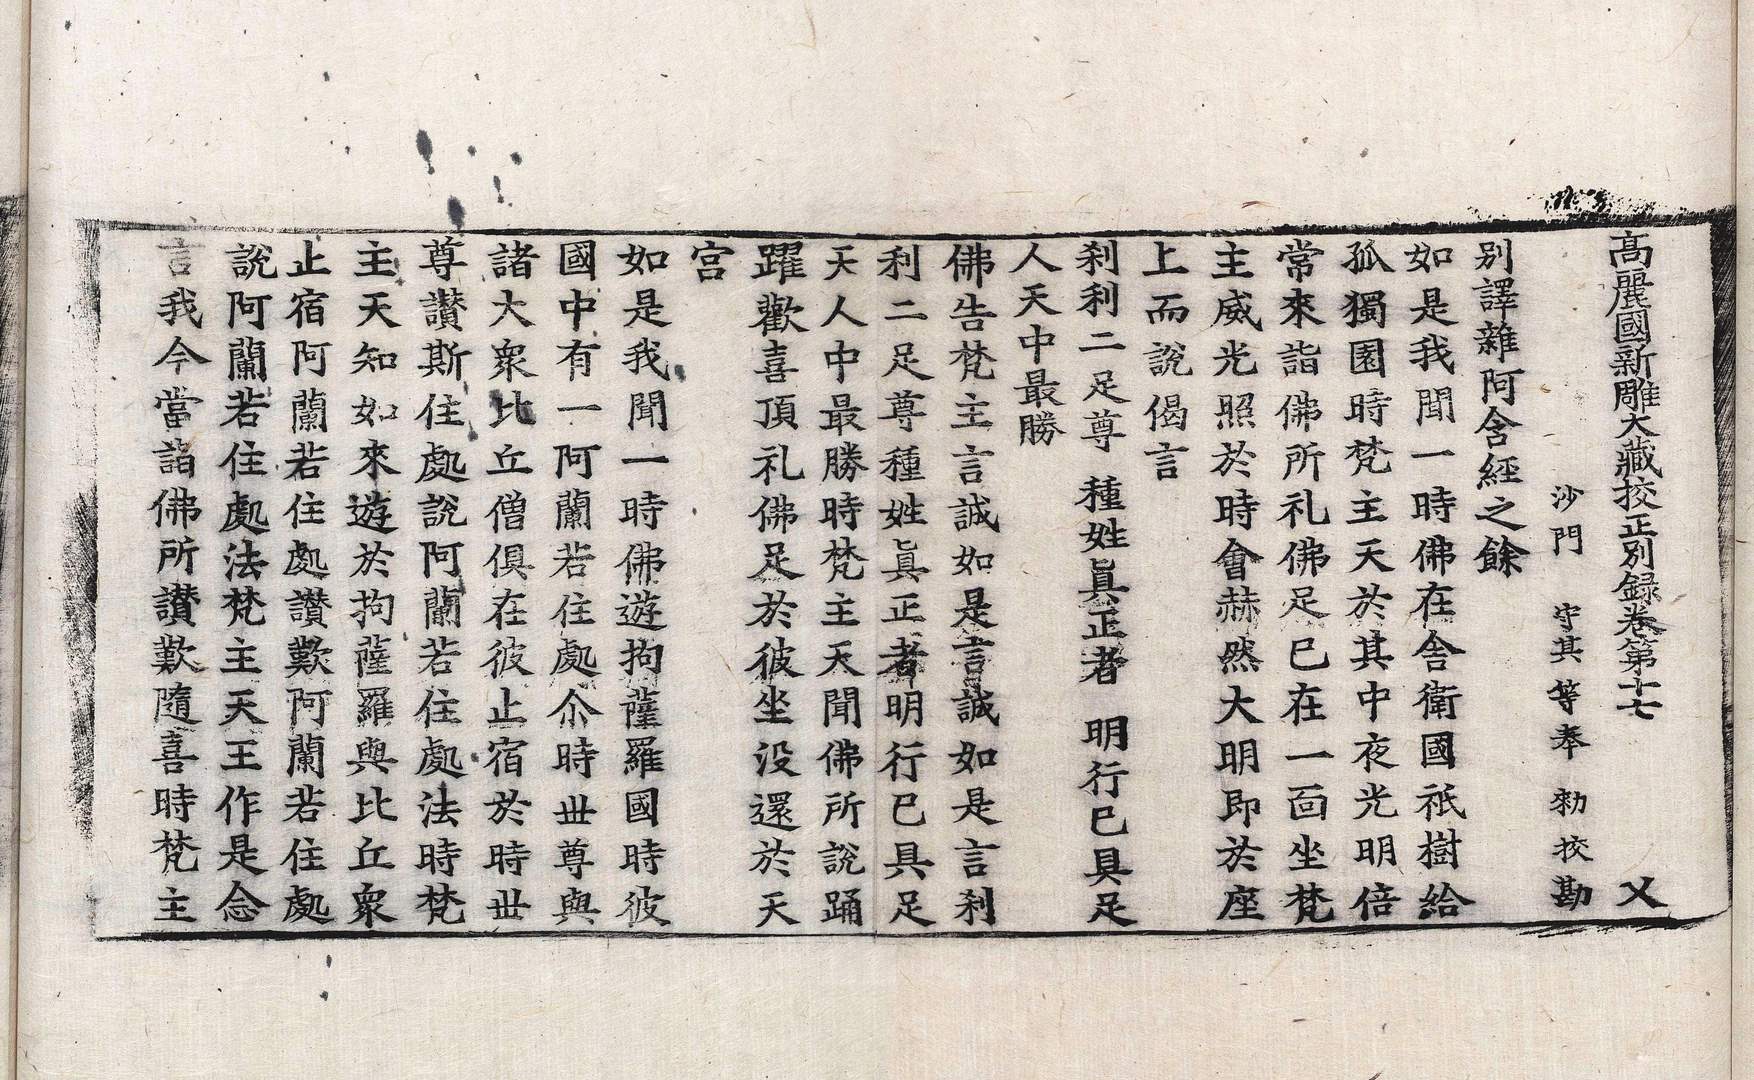 高麗國新雕大藏校正別錄卷第十七 乂
沙門 守其等奉 勑校勘
別譯雜阿含經之餘
如是我聞一時佛在舎衛國祇樹給
孤獨園時梵主天於其中夜光明倍
常來詣佛所礼佛足已在一面坐梵
主威光照於時會赫然大明即於座
上而說偈言
刹利二足尊 種姓眞正者 明行已具足
人天中最勝
佛告梵主言誠如是言誠如是言刹
利二足尊種姓眞正者明行已具足
天人中最勝時梵主天聞佛所說踊
躍歡喜頂礼佛足於彼坐没還於天
宮
如是我聞一時佛遊拘薩羅國時彼
國中有一阿蘭若住處尒時世尊與
諸大衆比丘僧俱在彼止宿於時世
尊讃斯住處說阿蘭若住處法時梵
主天知如來遊於拘薩羅與比丘衆
止宿阿蘭若住處讃歎阿蘭若住處
說阿蘭若住處法梵主天王作是念
言我今當詣佛所讃歎隨喜時梵主